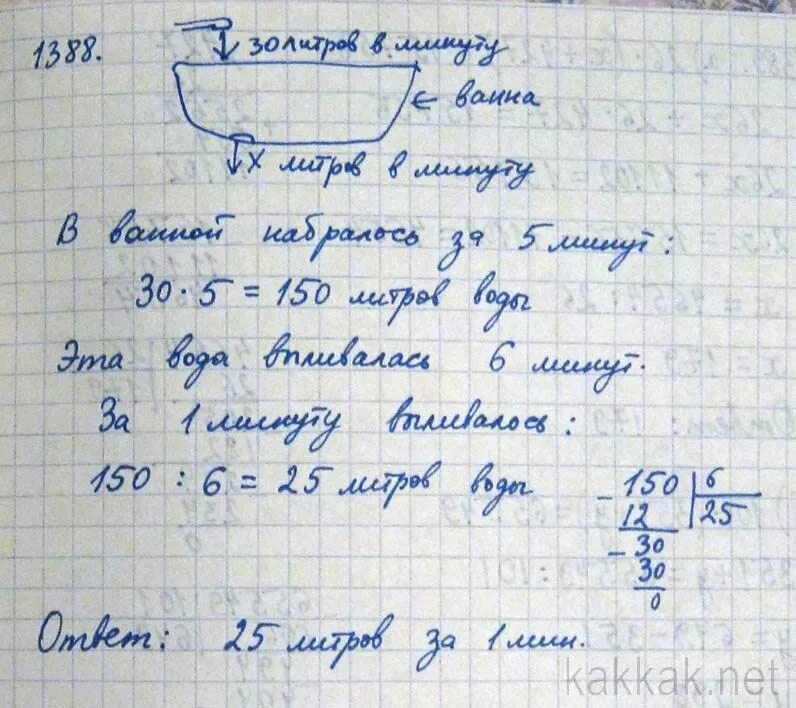 1388.
30 литров в минуту
← ванна
X литров в минуту
В ванной набралось за 5 минут:
30 · 5 = 150 литров воды
Эта вода выливалась 6 минут.
За 1 минуту выливалось:
150 : 6 = 25 литров воды
- 150 | 6
12 | 25
- 30
30
0
Ответ: 25 литров за 1 мин.
kakkak.net